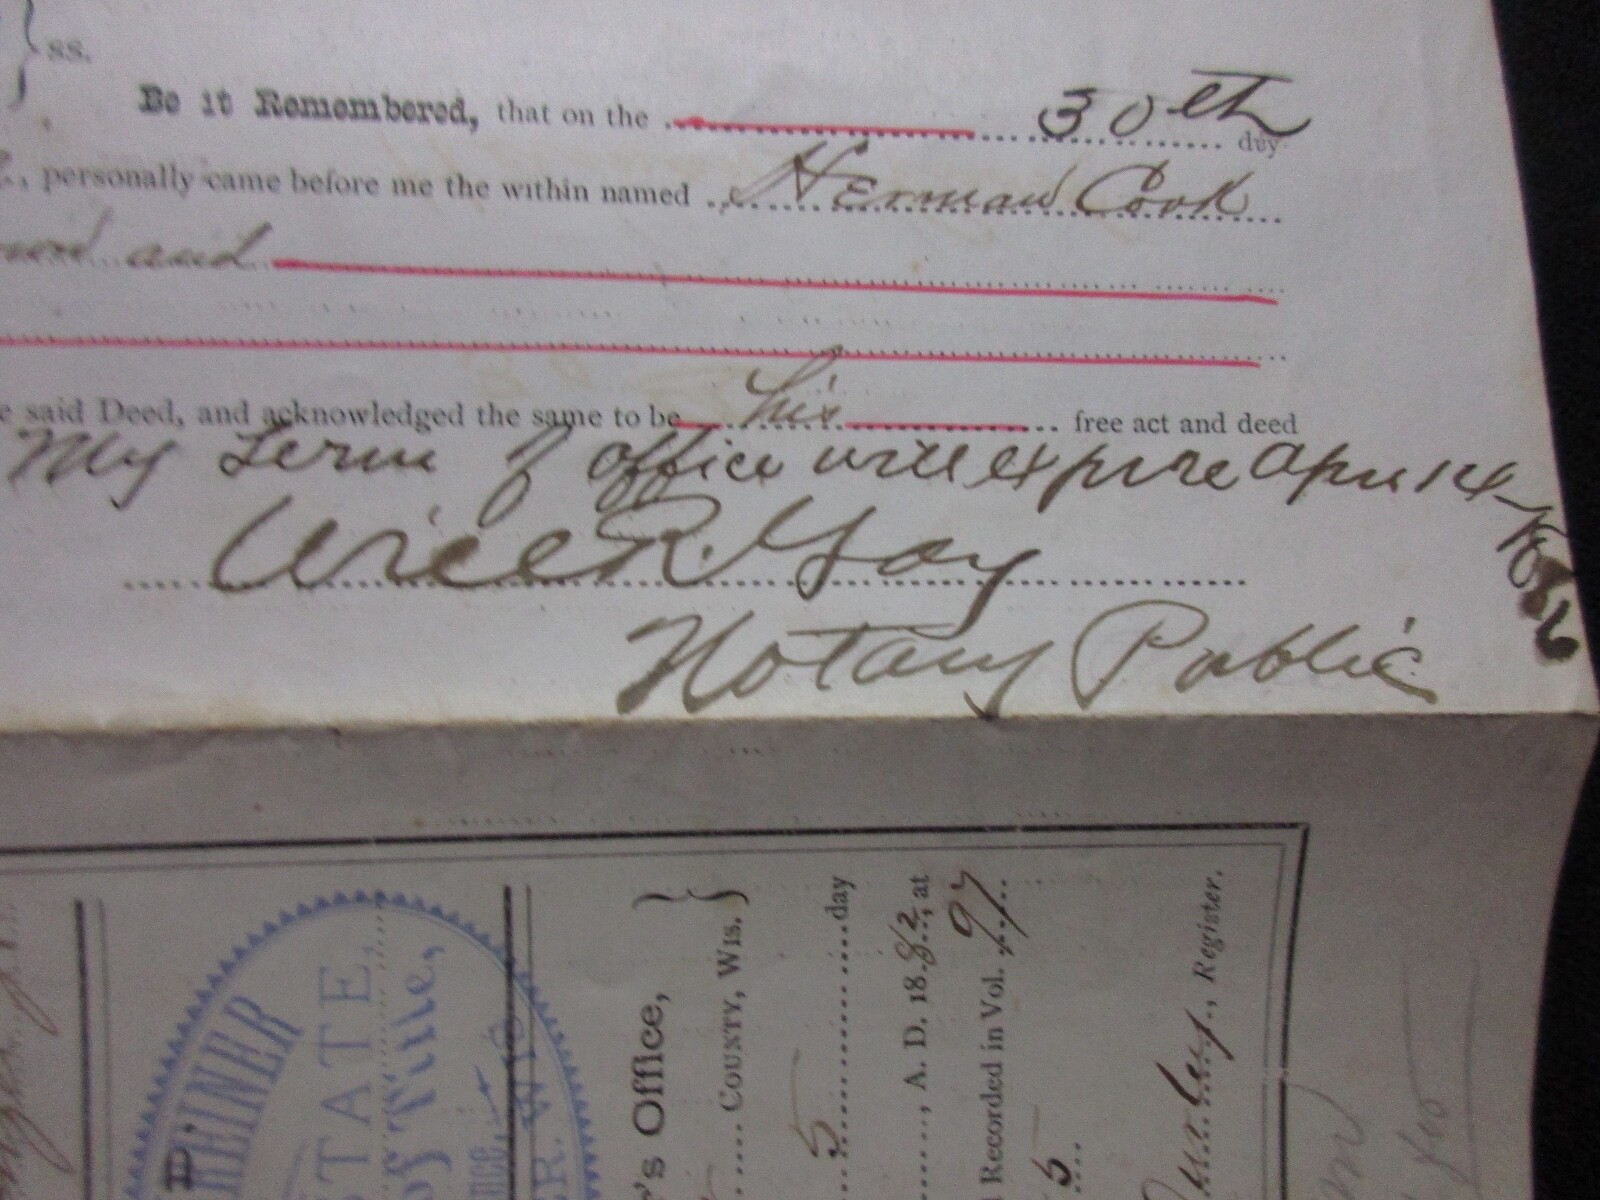 ss.
Be it Remembered, that on the 30th day
personally came before me the within named Herman Cook
and
said Deed, and acknowledged the same to be his free act and deed
My term of office will expire April 14
Will R. Gay
Notary Public
REINER
STATE,
of Title,
's Office,
COUNTY, Wis.
5 day
, A. D. 1882, at
Recorded in Vol. 97
5
, Register.